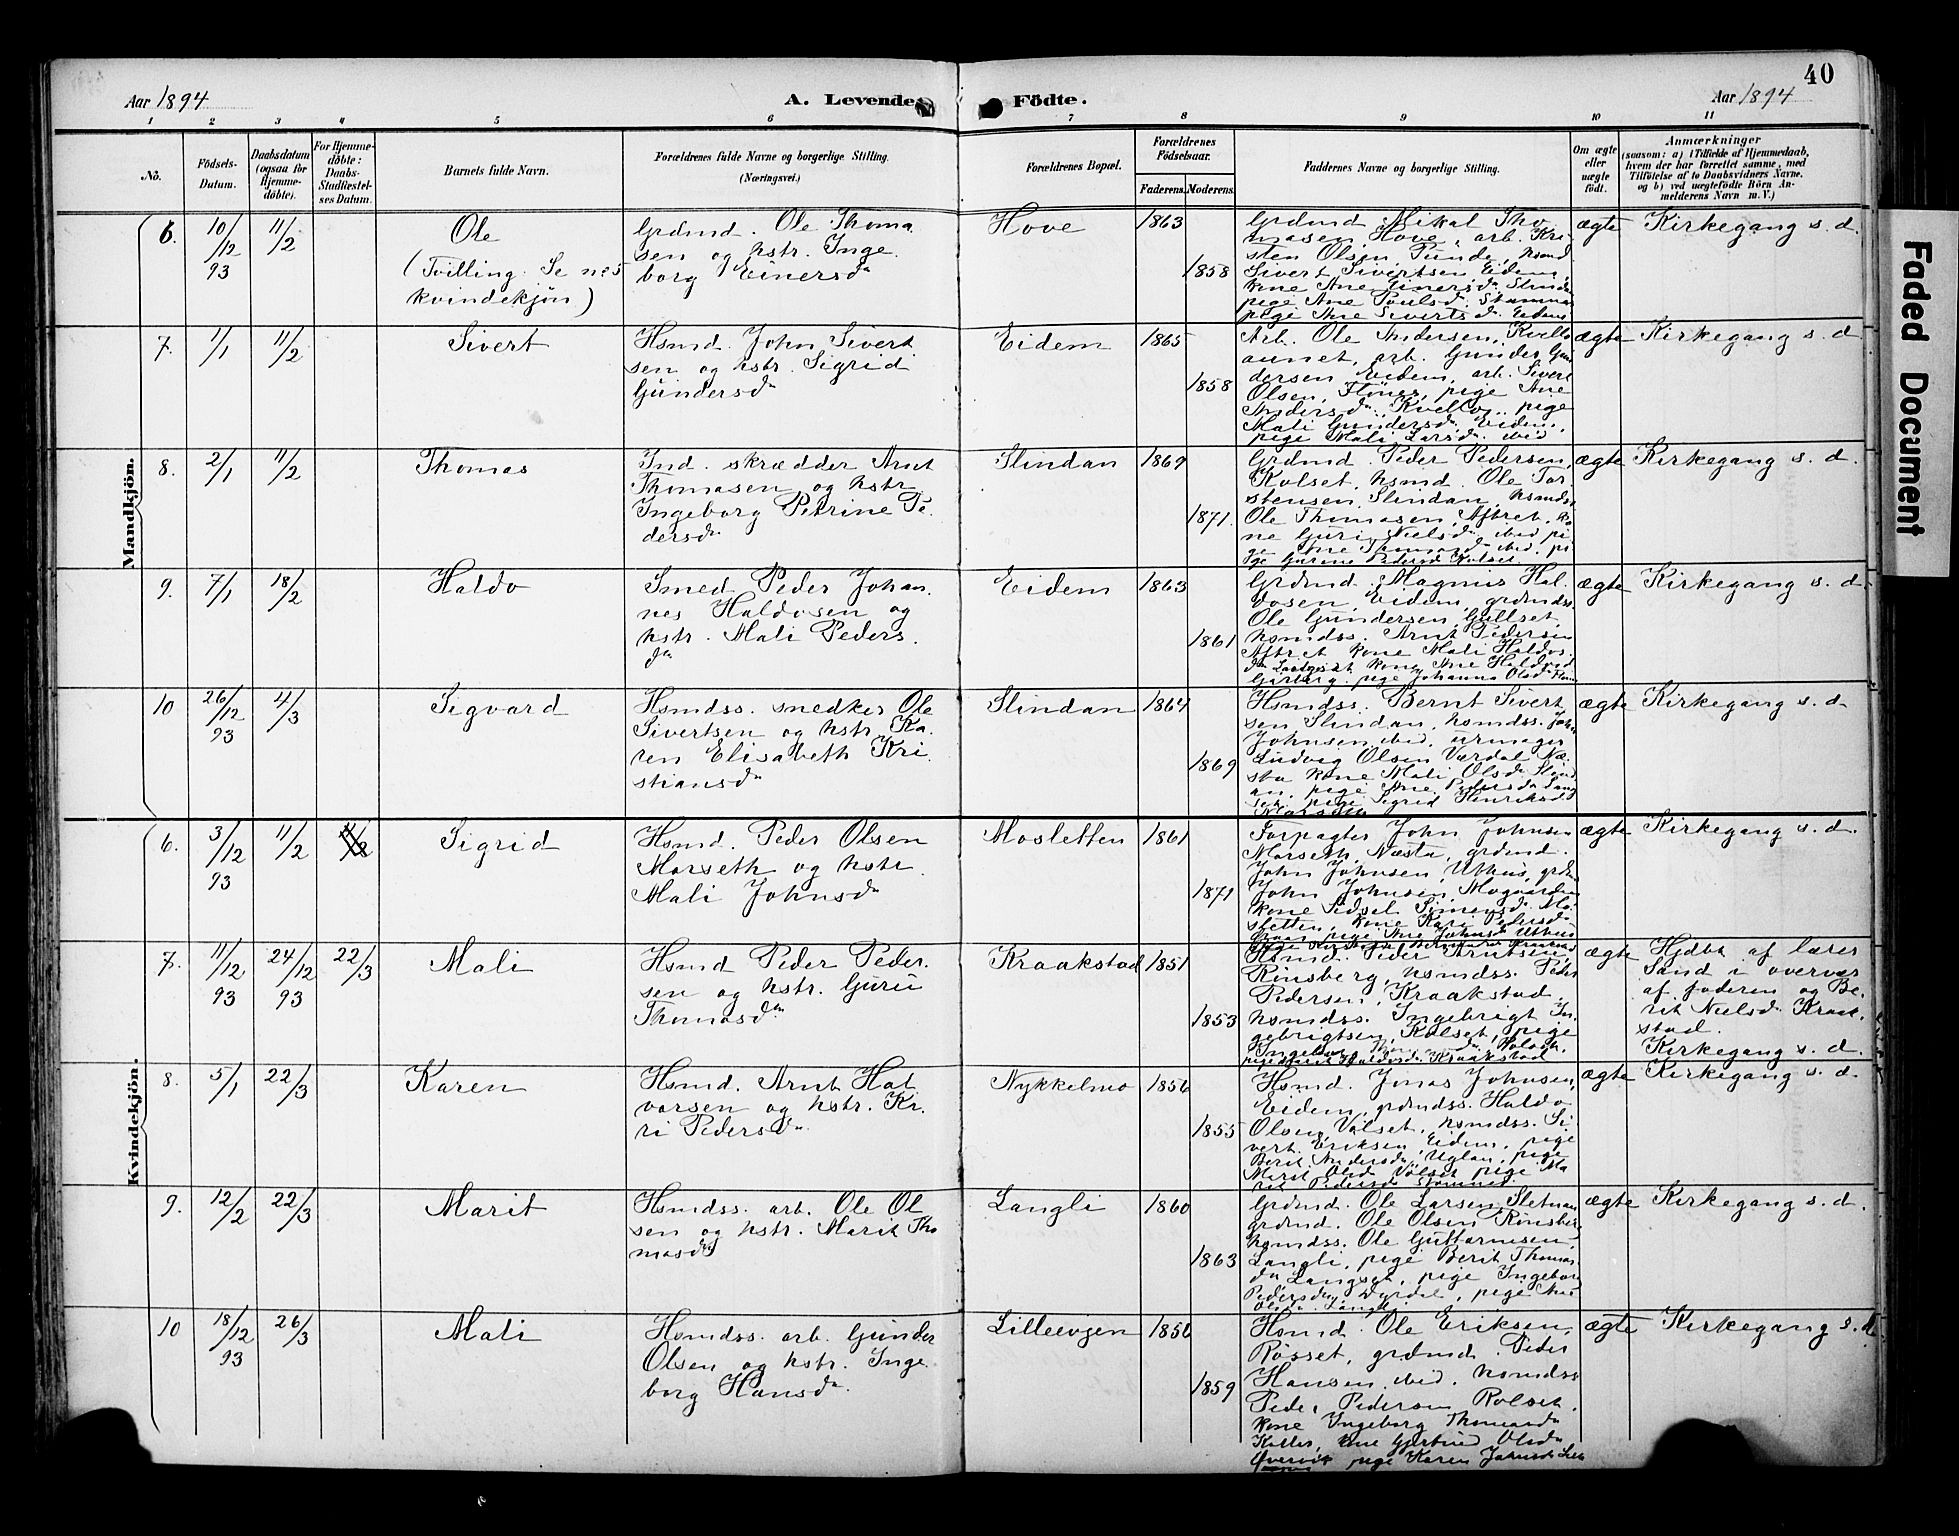 40
Aar 1894
A. Levende
Födte.
Aar 1894
1 2 3 4 5 6 7 8 9 10 11
No.
Födsels-
Datum.
Daabsdatum
(ogsaa for
Hjemme-
döbte).
For Hjemme-
döbte:
Daabs-
Stadfæstel-
ses Datum.
Barnets fulde Navn.
Forældrenes fulde Navne og borgerlige Stilling.
(Næringsvei.)
Forældrenes Bopæl.
Forældrenes
Födselsaar.
Faderens. Moderens.
Faddernes Navne og borgerlige Stilling.
Om ægte
eller
uægte
födt.
Anmærkninger
(saasom: a) i Tilfælde af Hjemmedaab,
hvem der har forrettet samme, med
Tilföielse af to Daabsvidners Navne,
og b) ved uægtefödte Börn An-
melderens Navn m. V.)
Mandkjön.
6. 10/12 93 11/2
Ole
(Tvilling. Se no 5
kvindekjön)
Grdmd. Ole Thoma
sen og hstr. Inge
borg Einersdr
Hove
1863
1858
Grdmd Mikal Tho
masen Hove, arb. Kri-
sten Olsen, Punde, hsmd
Sivert Sivertsen Eidem,
kone Ane Einersdr
pige Ane Poulsd.
pige Ane Sivertsdr. Eidem
ægte
Kirkegang s. d.
7. 1/1 11/2
Sivert
Hsmd. John Sivert
sen og hstr. Sigrid
Gundersdr
Eidem
1865
1858
Arb. Ole Andersen, Kvello
aunet, arb. Gunder Gun
dersen Eidem, arb. Sivert
Olsen, Flönes, pige Ane
Andersdr. Kvello, pige
Mali Gundersdr. Eidem,
pige Mali Larsdr. ibid
ægte
Kirkegang s. d
8. 2/1 11/2
Thomas
Ind. skrædder Arnt
Thomasen og hstr
Ingeborg Petrine Pe
dersdr
Slindan
1869
1871.
Grdmd. Peder Pedersen,
Kolset, hsmd. Ole Tor
stensen, Slindan, hsmdss
Ole Thomasen, Aftret, ko
ne Guri Nielsdr ibid pi
ge Ane ibid, pi
ge
ægte
Kirkegang s. d.
9. 7/1 18/2
Haldo
Smed Peder Johan
nes Haldosen og
hstr. Mali Peders.
dr
Eidem
1863
1861
Grdmd. Magnus Hal.
dosen, Eidem, grdmdss.
Ole Gundersen, Gullset,
hsmdss. Arnt Pedersen
Aftret kone Mali Haldos.
dr kone Ane
pige Johanna Olsdr
ægte
Kirkegang s. d.
10 26/12 93 4/3
Sigvard
Hsmdss. snedker Ole
Sivertsen og hstr. Ka.
ren Elisabeth Kri
stiansdr
Slindan
1864
1869
Hsmdss. Bernt Sivert
sen Slindan, hsmdss. John
Johnsen ibid, urmager
Ludvig Olsen Værdal Næ.
sta kone Mali Olsdr Slind
an, pige Ane Pedersdr
pige Sigrid Henriksdr
ægte
Kirkegang s. d
Kvindekjön.
6. 3/12 93 11/2
Sigrid
Hsmd. Peder Olsen
Marseth og hstr.
Mali Johnsdr
Mosletten
1861
1871
Forpagter John Johnsen
Marseth, Næsta, grdmd.
John Johnsen, Uthus, grdm
John Johnsen Mogaarden
kone Sidsel Simensdr Mo
sletten, kone Kari Pedersdr
pige Ane Johnsdr Uthus
ægte
Kirkegang s. d.
7. 11/12 93 24/12 93 22/3
Mali
Hsmd Peder Peder.
sen og hstr. Guru
Thomasdr
Kraakstad
1851
1853
Hsmd. Peder Arntsen,
Rinsberg, hsmdss. Peder
Pedersen, Kraakstad,
hsmdss. Ingebrigt In
gebrigtsen, Kolset, pige
Ingeborg
Kraakstad
ægte
Hjdbt af lærer
Sand i overvær
af faderen og Be.
rit Nielsdr Kraak.
stad.
Kirkegang s. d.
8. 5/1 22/3
Karen
Hsmd. Arnt Hal
vorsen og hstr. Ka.
ri Pedersdr
Nykkelmo
1856
1855
Hsmd. Jonas Johnsen,
Eidem, grdmdss. Haldo
Olsen Valset, hsmdss. Si
vert Eriksen Eidem, pige
Berit Andersdr, Uglan, pige
Marit Olsdr Valset pige Ma
rit Pedersdr
ægte
Kirkegang s. d.
9. 12/2 22/3
Marit
Hsmdss. arb. Ole Ol
sen og hstr. Marit Tho
masdr
Langli
1860
1863
Grdmd. Ole Larsen, Sletman
grdmd. Ole Olsen Rinsber
hsmdss. Ole Guttormsen
Langli, pige Berit Thomas
dr Langset, pige Ingeborg
Pedersdr Dyrdal, pige Ane
Olsdr Langli
ægte
Kirkegang s. d.
10 18/12 93 26/3
Mali
Hsmdss. arb. Gunder
Olsen og hstr. Inge
borg Hansdr.
Lilleevjen
1856
1859
Hsmd. Ole Eriksen,
Røsset, grdmd. Peder
Hansen ibid, hsmdss
Peder Pedersen Rolset,
kone Ingeborg Thomasdr
kone Gjertrud Olsdr
pige Karen Johnsdr
ægte
Kirkegang s. d.
Faded Document